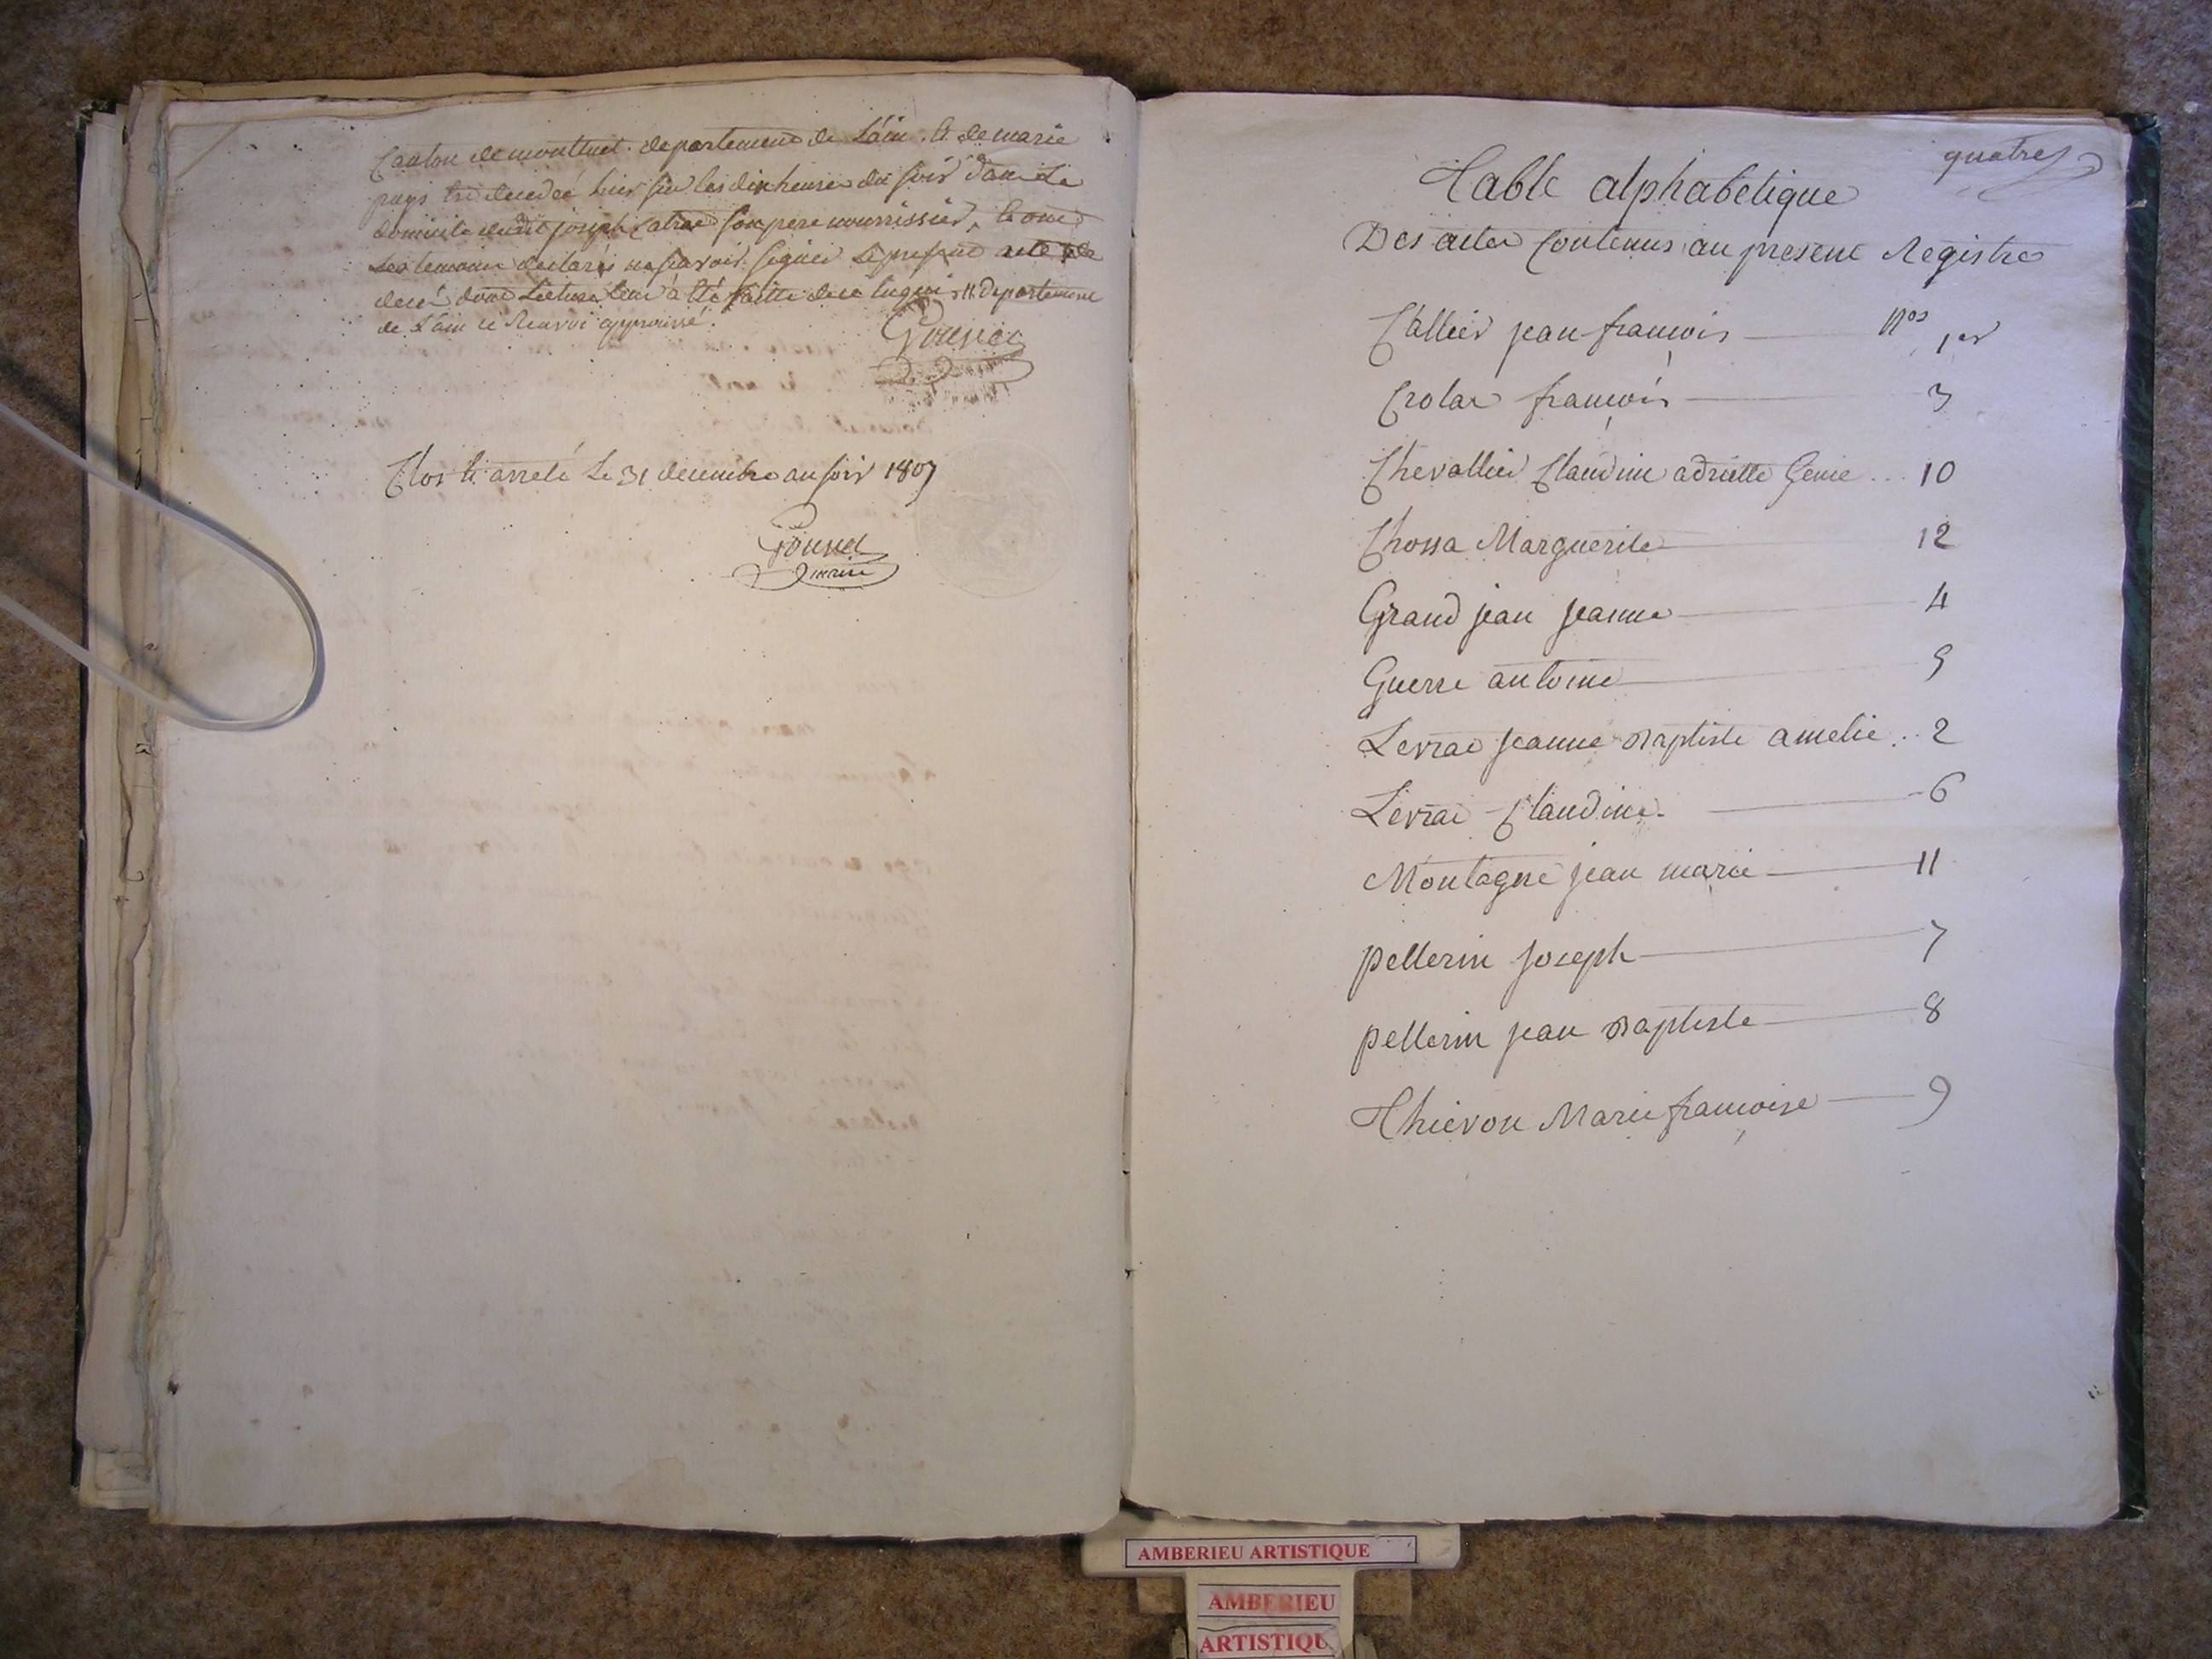 Canton de montluel departement de L'ain. & de marie
puys est decedeé hier sur les dix heures du soir dans le
domicile dudit joseph son pere nourrissier, & ont
Les temoins declarés ne sçavoir signer Le present acte de
decé dont Lecture leur à été faitte dece enquis departement
de L'ain ce Renvoi approuvé.
Clos & arreté Le 31 decembre au soir 1807
maire
quatre
Table alphabetique
Des actes Contenus au present Registre
Callier jean francois Nos 1er
Crolar francois 3
Chevallier Claudine adriette Genie .. 10
Chossa Marguerite 12
Grand jean jeanne 4
Guerre antoine 5
Levrac jeanne Baptiste amelie .. 2
Levrac Claudine 6
Montagne jean marie 11
pellerin joseph 7
pellerin jean Baptiste 8
Thievon Marie francoise 9
AMBERIEU ARTISTIQUE
AMBERIEU
ARTISTIQU